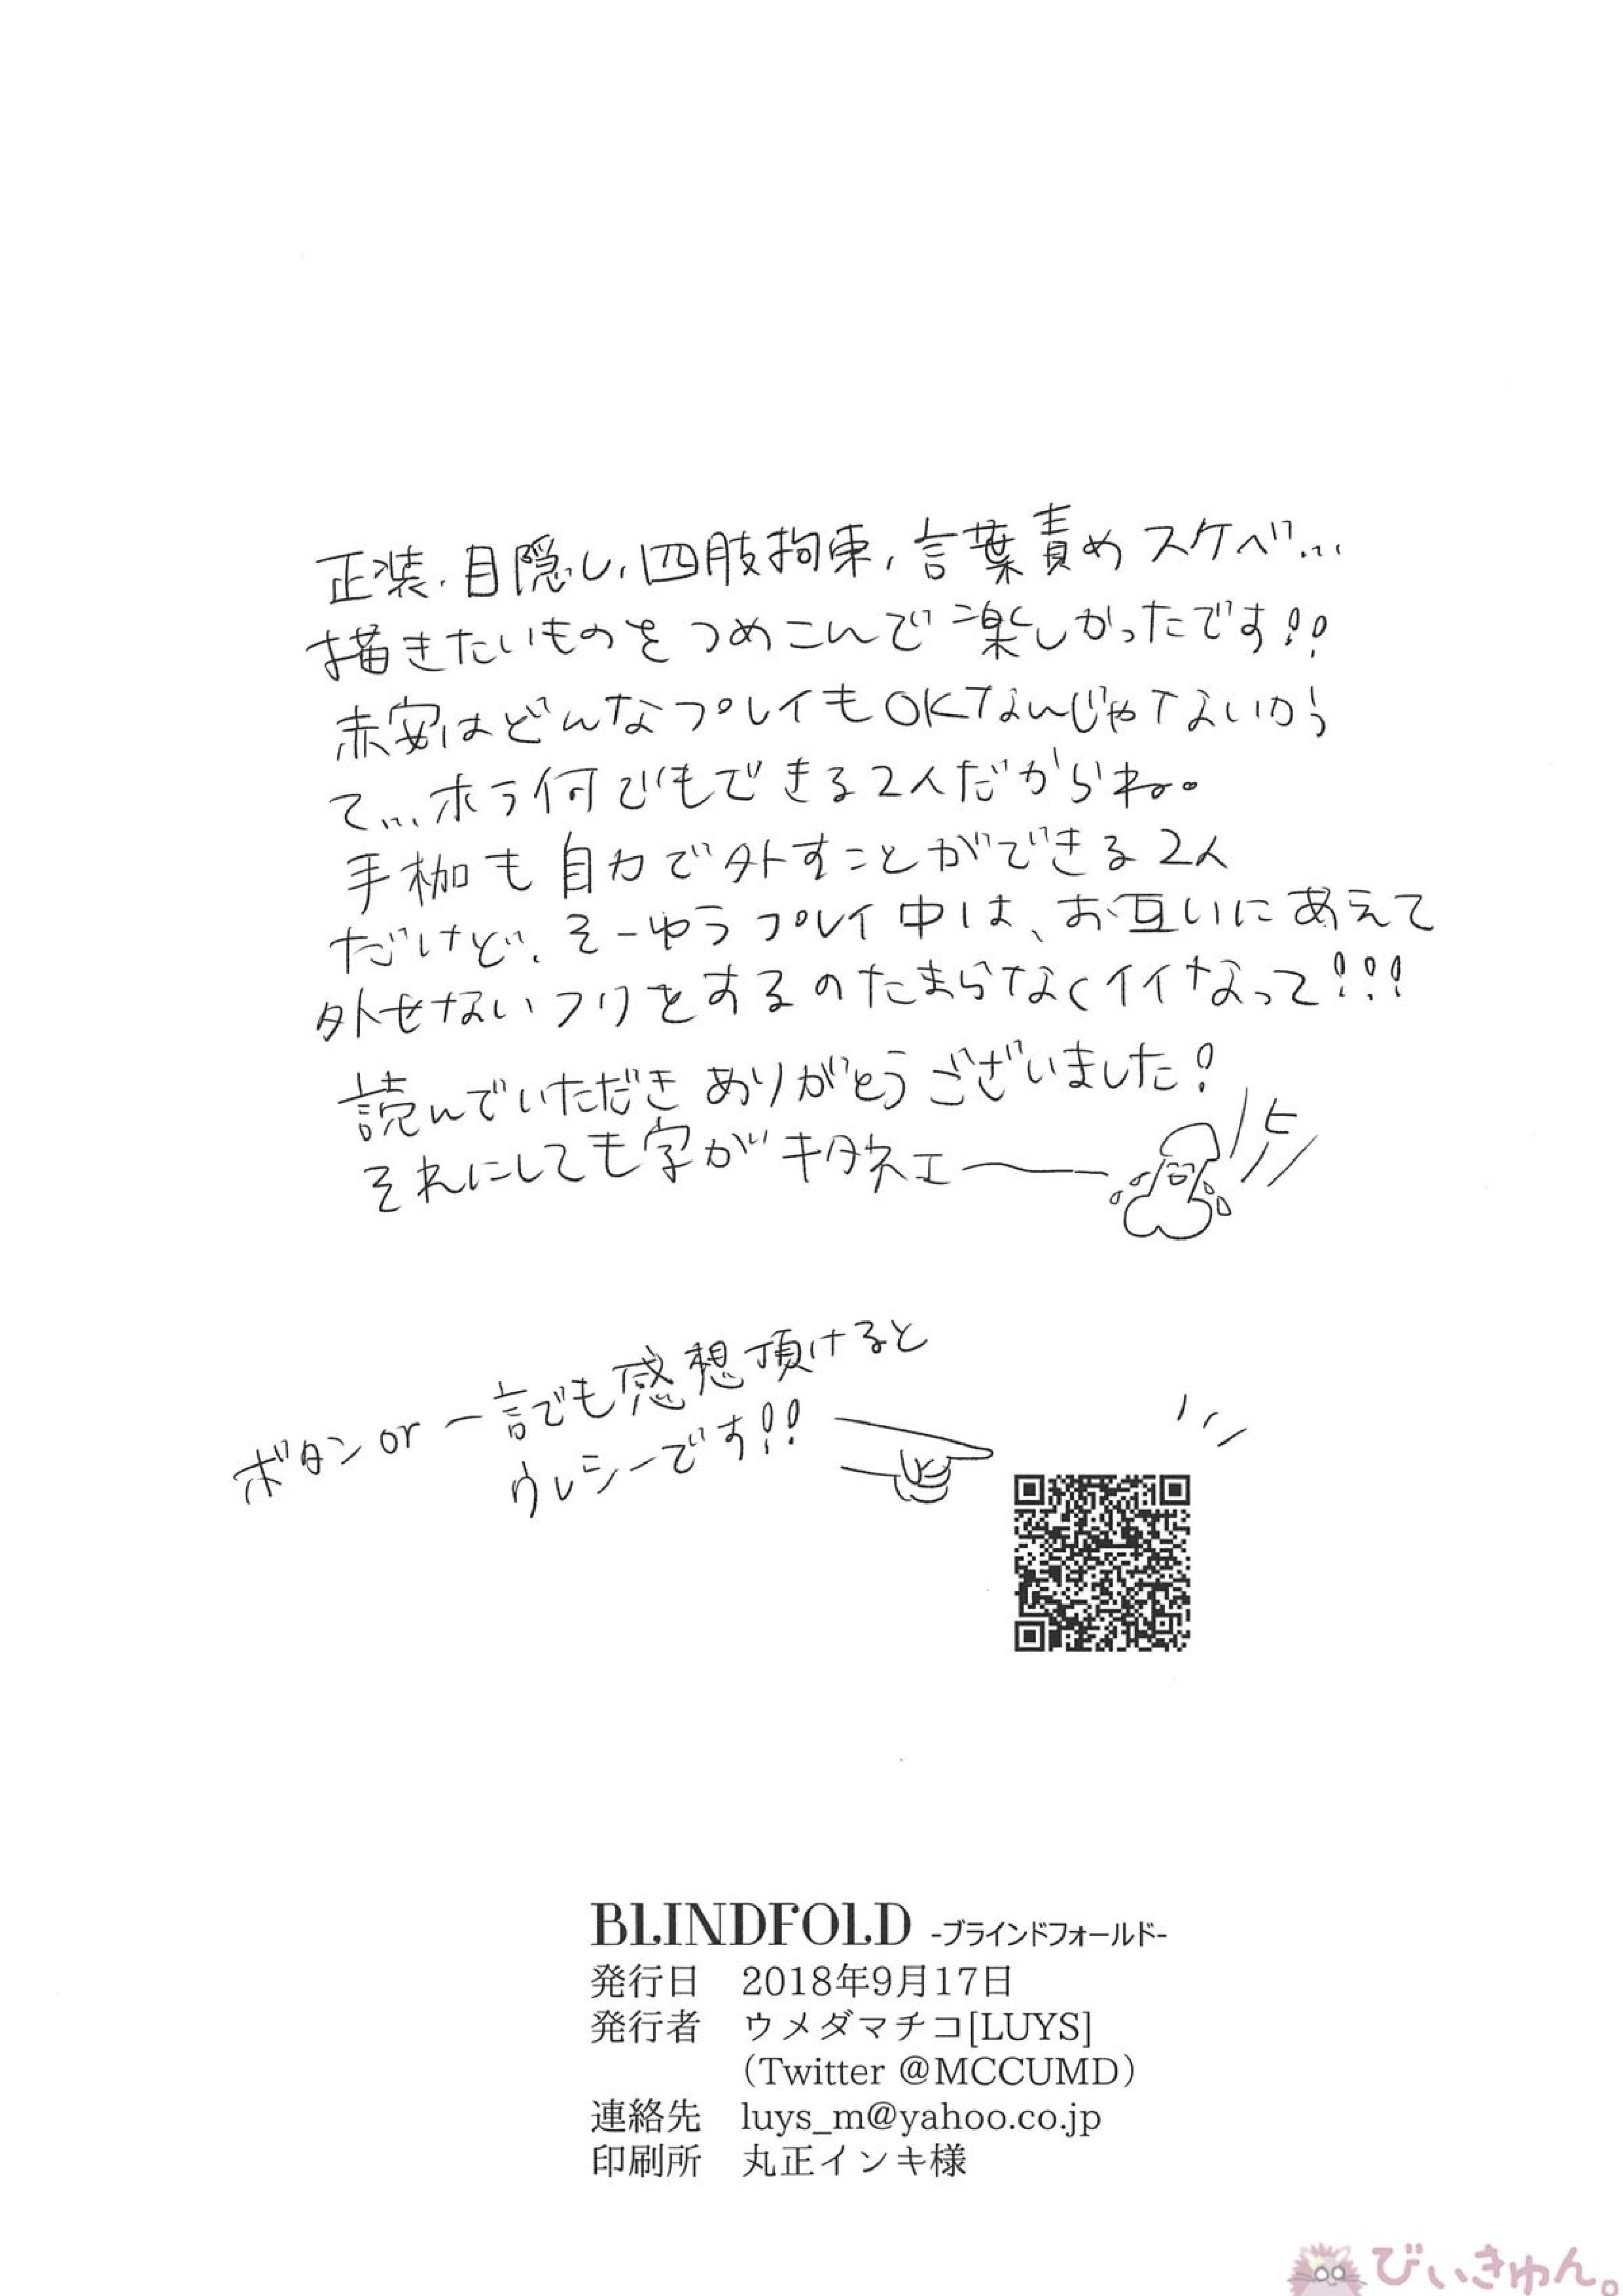 正装、目隠し、四肢拘束、言葉責めスケベ…
描きたいものをつめこんで楽しかったです!!
赤安はどんなプレイもOKなんじゃないかっ
て…ホラ何でもできる2人だからね。
手枷も自力で外すことができる2人
だけど、そーゆうプレイ中は、お互いにあえて
外せないフリをするのたまらなくイイなって!!!
読んでいただきありがとうございました!
それにしても字がキタネェ〜
ボタンor一言でも感想頂けると
ウレシーです!!
BLINDFOLD -ブラインドフォールド-
発行日 2018年9月17日
発行者 ウメダマチコ[LUYS]
(Twitter @MCCUMD)
連絡先 luys_m@yahoo.co.jp
印刷所 丸正インキ様
びぃきゅん。